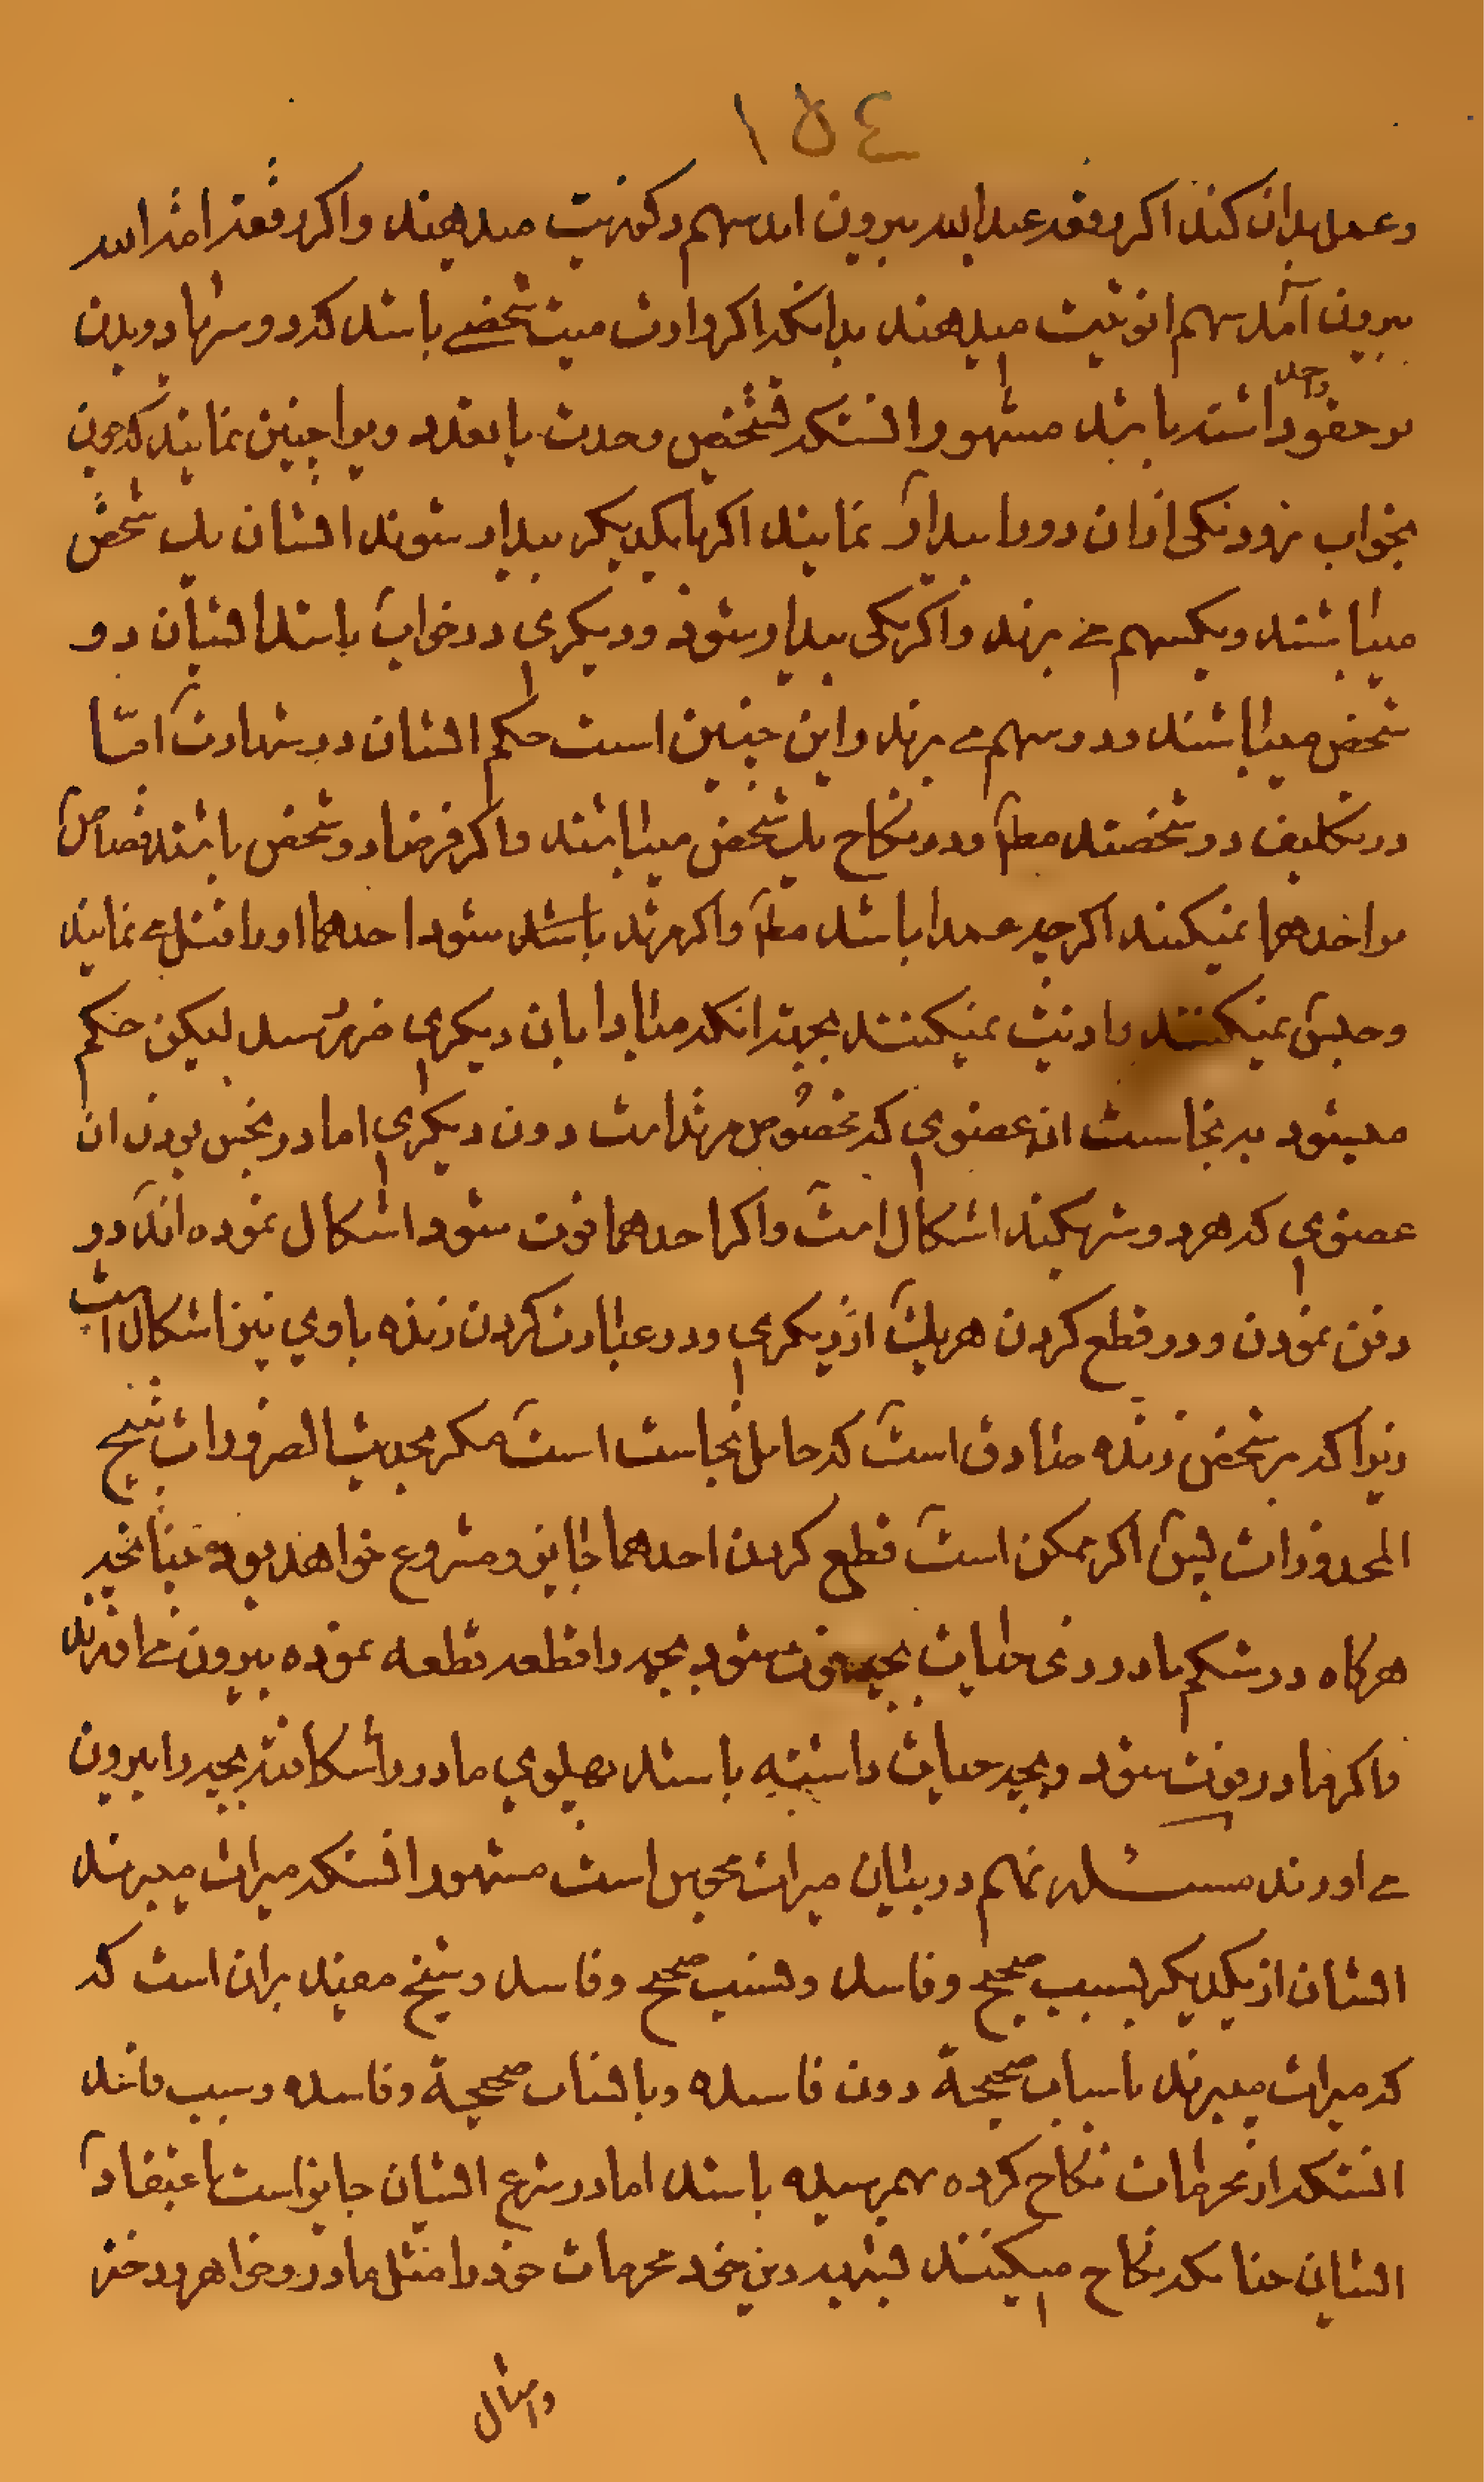 ١٥٤
و عمل بدان کند اکر رقعه عبد الله بیرون اید سهم ذکوریت میدهند و اکر رقعه امة الله
بیرون آمد سهم انوثیت میدهند بدانکه اکر وارث میت شخصے باشد که دو سر یا دو بدن
بر حقو واحد داشته باشد مشهور انستکه تشخیص وحدت یا تعدد ویرا چنین نمایند که چون
بخواب رود یکی ازان دو را بیدار نمایند اکر با یکدیکر بیدار شوند ایشان یک شخص
میباشند و یکسهم مے برند و اکر یکی بیدار شود و دیکری در خواب باشد ایشان دو
شخص میباشند و دو سهم مے برند و این چنین است حکم ایشان در شهادت امّا
در تکلیف دو شخصند مطلقا و در نکاح یک شخص میباشند و اکر فرضا دو شخص باشند قصاص
بر احدهما نمیکنند اکر چه عمدا باشد مطلقا و اکر مرتد باشد شود احدهما او را قتل نمے نمایند
و حبس نمیکنند و اذیت نمیکنند بجهة انکه مبادا بان دیکری ضرر رسد لیکن حکم
میشود بر نجاست ان عضوی که مخصوص مرتد است دون دیکری اما در نجس بودن ان
عضوی که هردو شریکند اشکال است و اکر احدهما فوت شود اشکال نموده اند در
دفن نمودن و در قطع کردن هریک از دیکری و در عبادت کردن زنده با وی نیز اشکال است
زیرا که بر شخص زنده صادق است که حامل نجاست است مکر بحدیث الضرورات تبیح
المحذورات پس اکر ممکن است قطع کردن احدهما جایز و مشروع خواهد بود چنانچه
هرکاه در شکم مادر ذی حیات بچه فوت شود بچه را قطعه قطعه نموده بیرون مے اورند
و اکر مادر فوت شود و بچه حیات داشته باشد پهلوی مادر را شکافند بچه را بیرون
مے اورند مسئله نهم در بیان میراث مجوس است مشهور انستکه میراث میبرند
ایشان از یکدیکر بسبب صحیح و فاسد و نسب صحیح و فاسد و شیخ مفید بران است که
که میراث میبرند باسباب صحیحة دون فاسده و بانساب صحیحة و فاسده و سبب فاسد
انستکه از محرمات نکاح کرده بهم رسیده باشد اما در شرع ایشان جایز است باعتقاد
ایشان چنانکه نکاح میکنند بشبهه دین خود محرمات خود را مثل مادر و خواهر و دختر
و امثال